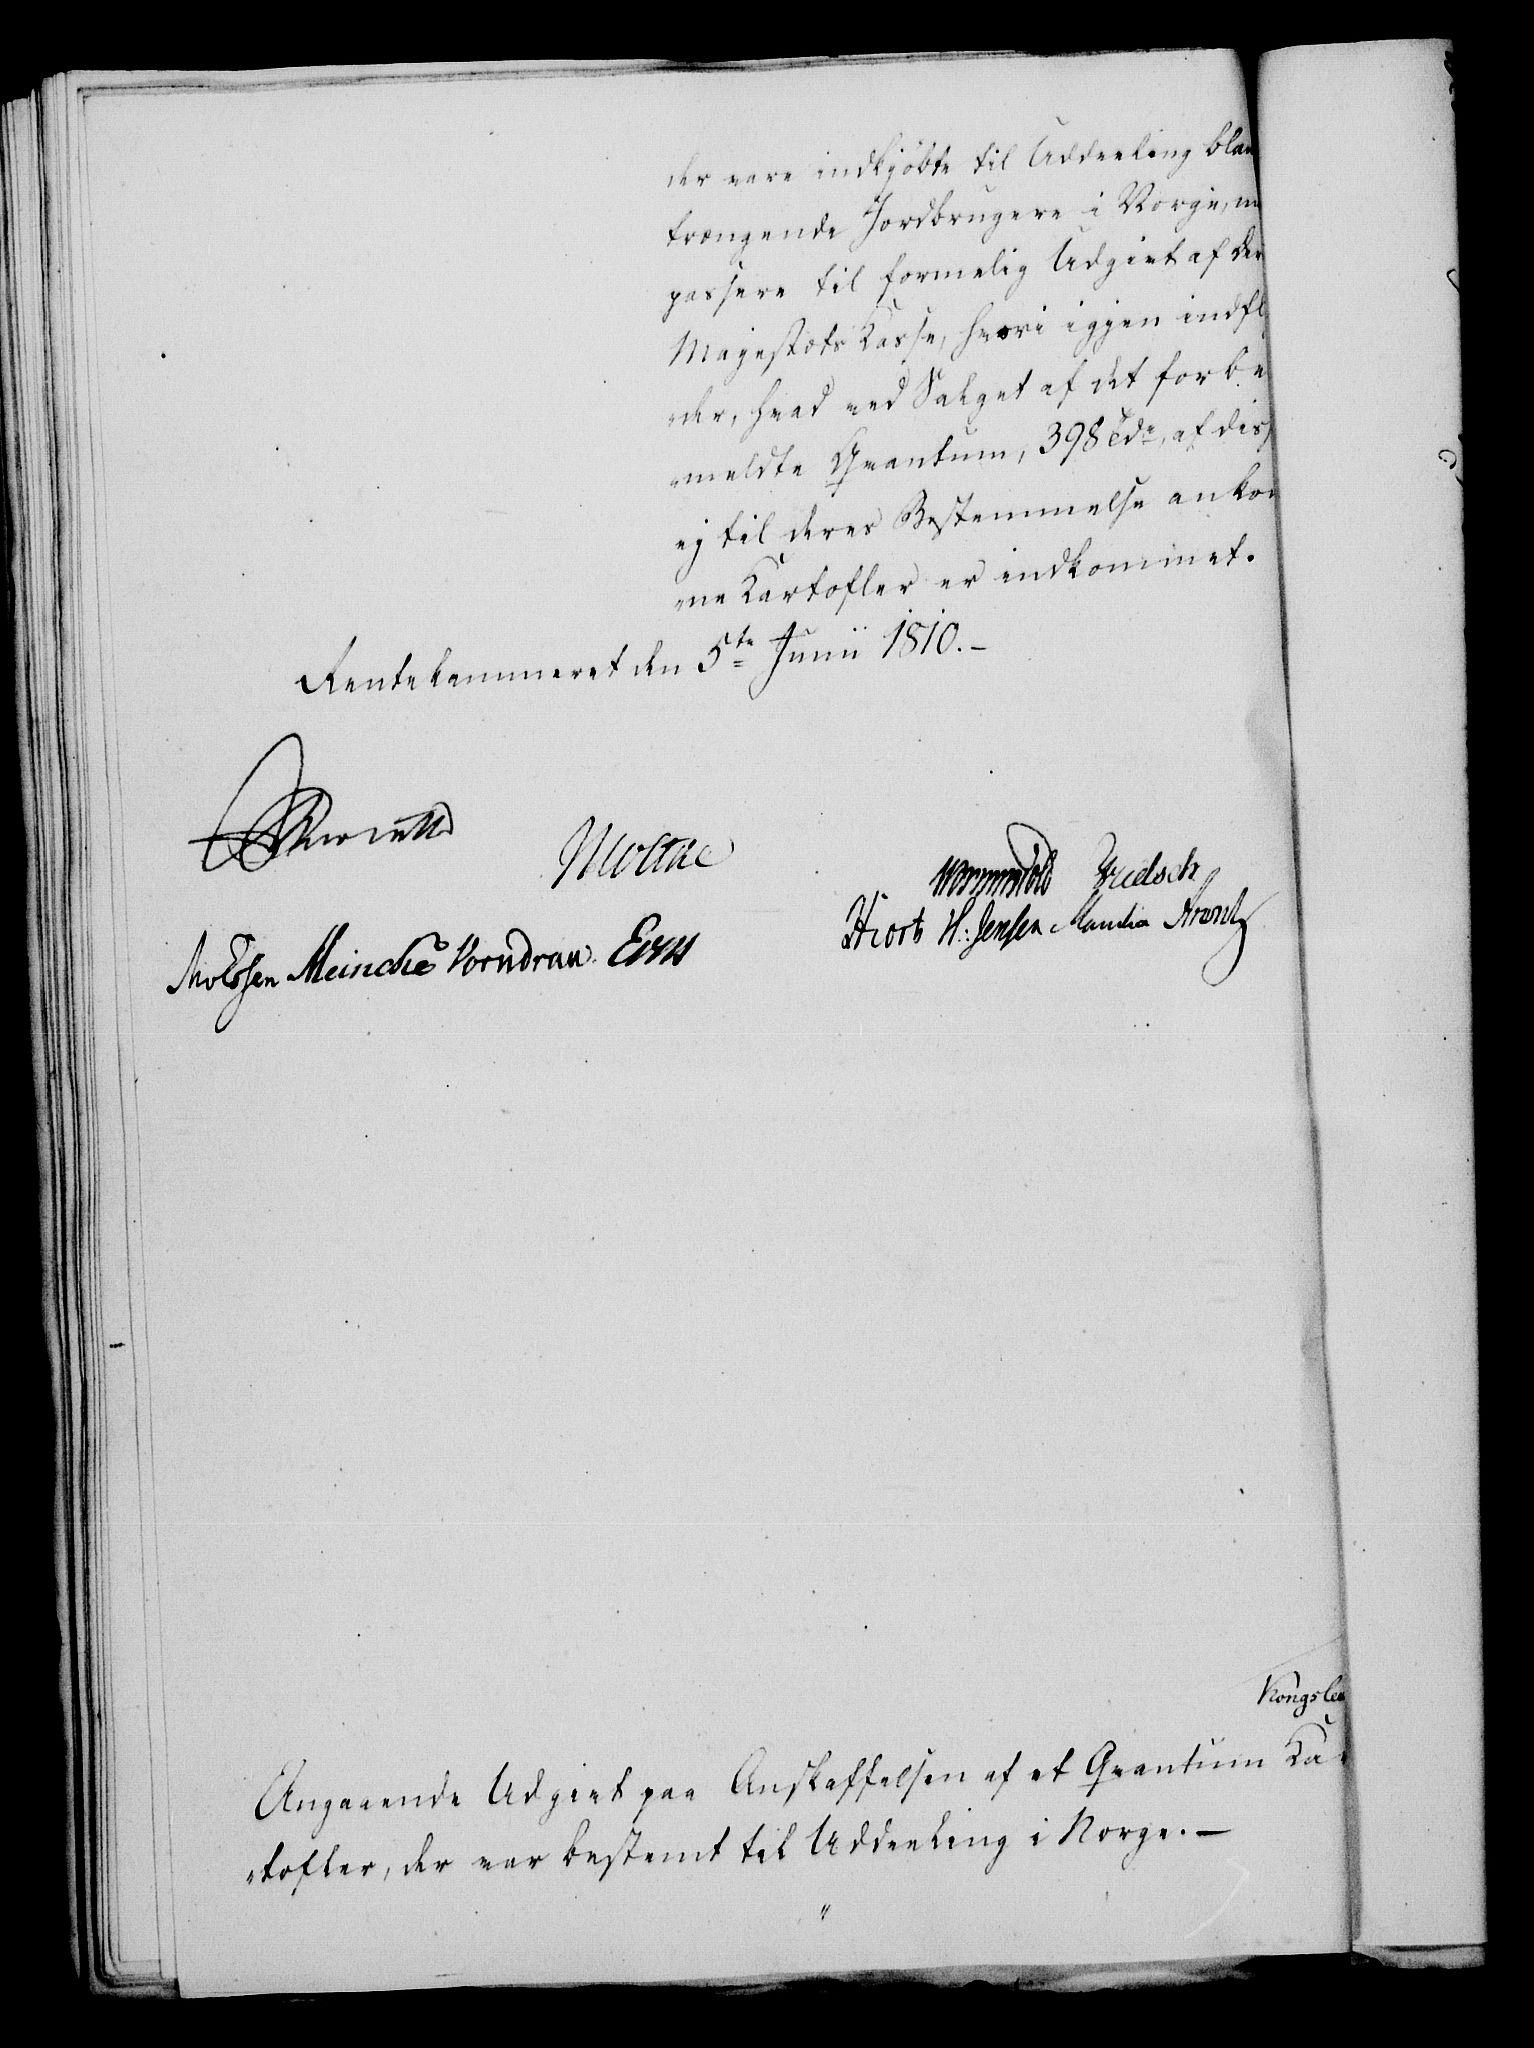 der vare indkjöbte til Uddeeling blan
trængende Jordbrugere i Norge, m
passere til formelig Udgivt af De
Majestæts Kasse, hvori igjen indfl
der, hvad ved Salget af det forbe
meldte Qvantum, 398 Tdr, af diss
ej til deres Bestemmelse ankom
ne Kartofler er indkommet.
Rentekammeret den 5te Junii 1810.–
Moltke
Wormskiold
Hiort H: Jensen Manthe Arentz
Meincke Vorndran
Kongsle
Angaaende Udgivt paa Anskaffelsen af et Qvantum Kar
tofler, der var bestemt til Uddeeling i Norge.–